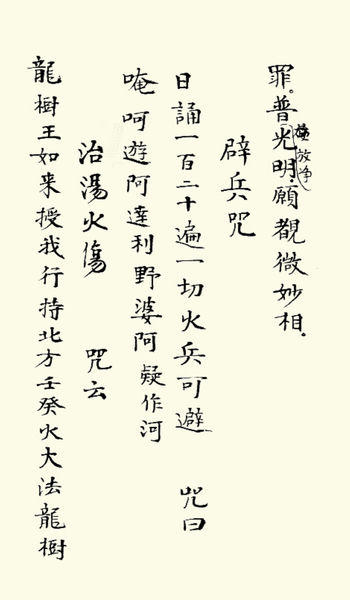 罪。普光明。願覩微妙相。
辟兵咒
日誦一百二十遍一切火兵可避 咒曰
唵呵遊阿達利野婆呵疑作河
治湯火傷 咒云
龍樹王如来授我行持北方壬癸火大法龍樹